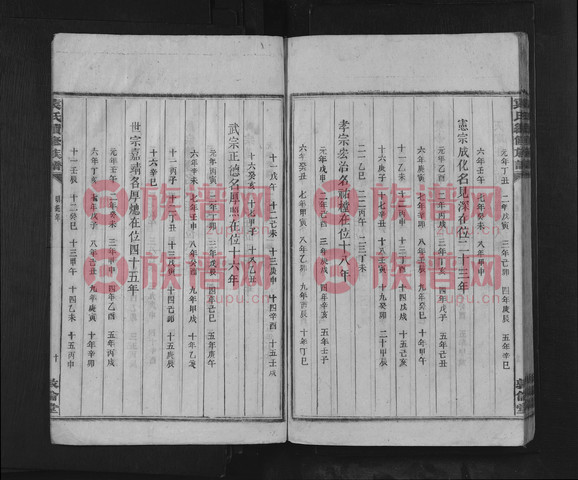 元年丁丑 二年戊寅 三年己卯 四年庚辰 五年辛巳
六年壬午 七年癸未 八年甲申
憲宗成化名見深在位二十三年
元年乙酉 二年丙戌 三年丁亥 四年戊子 五年己丑
六年庚寅 七年辛卯 八年壬辰 九年癸巳 十年甲午
十一乙未 十二丙申 十三丁酉 十四戊戌 十五己亥
十六庚子 十七辛丑 十八壬寅 十九癸卯 二十甲辰
二一乙巳 二二丙午 二三丁未
孝宗宏治名祐樘在位十八年
元年戊申 二年己酉 三年庚戌 四年辛亥 五年壬子
六年癸丑 七年甲寅 八年乙卯 九年丙辰 十年丁巳
十一戊午 十二己未 十三庚申 十四辛酉 十五壬戌
十六癸亥 十七甲子 十八乙丑
武宗正德名厚照在位十六年
元年丙寅 二年丁卯 三年戊辰 四年己巳 五年庚午
六年辛未 七年壬申 八年癸酉 九年甲戌 十年乙亥
十一丙子 十二丁丑 十三戊寅 十四己卯 十五庚辰
十六辛巳
世宗嘉靖名厚熜在位四十五年
元年壬午 二年癸未 三年甲申 四年乙酉 五年丙戌
六年丁亥 七年戊子 八年己丑 九年庚寅 十年辛卯
十一壬辰 十二癸巳 十三甲午 十四乙未 十五丙申
葉氏續修族譜
十
敦倫堂
族譜网
zupu.cn